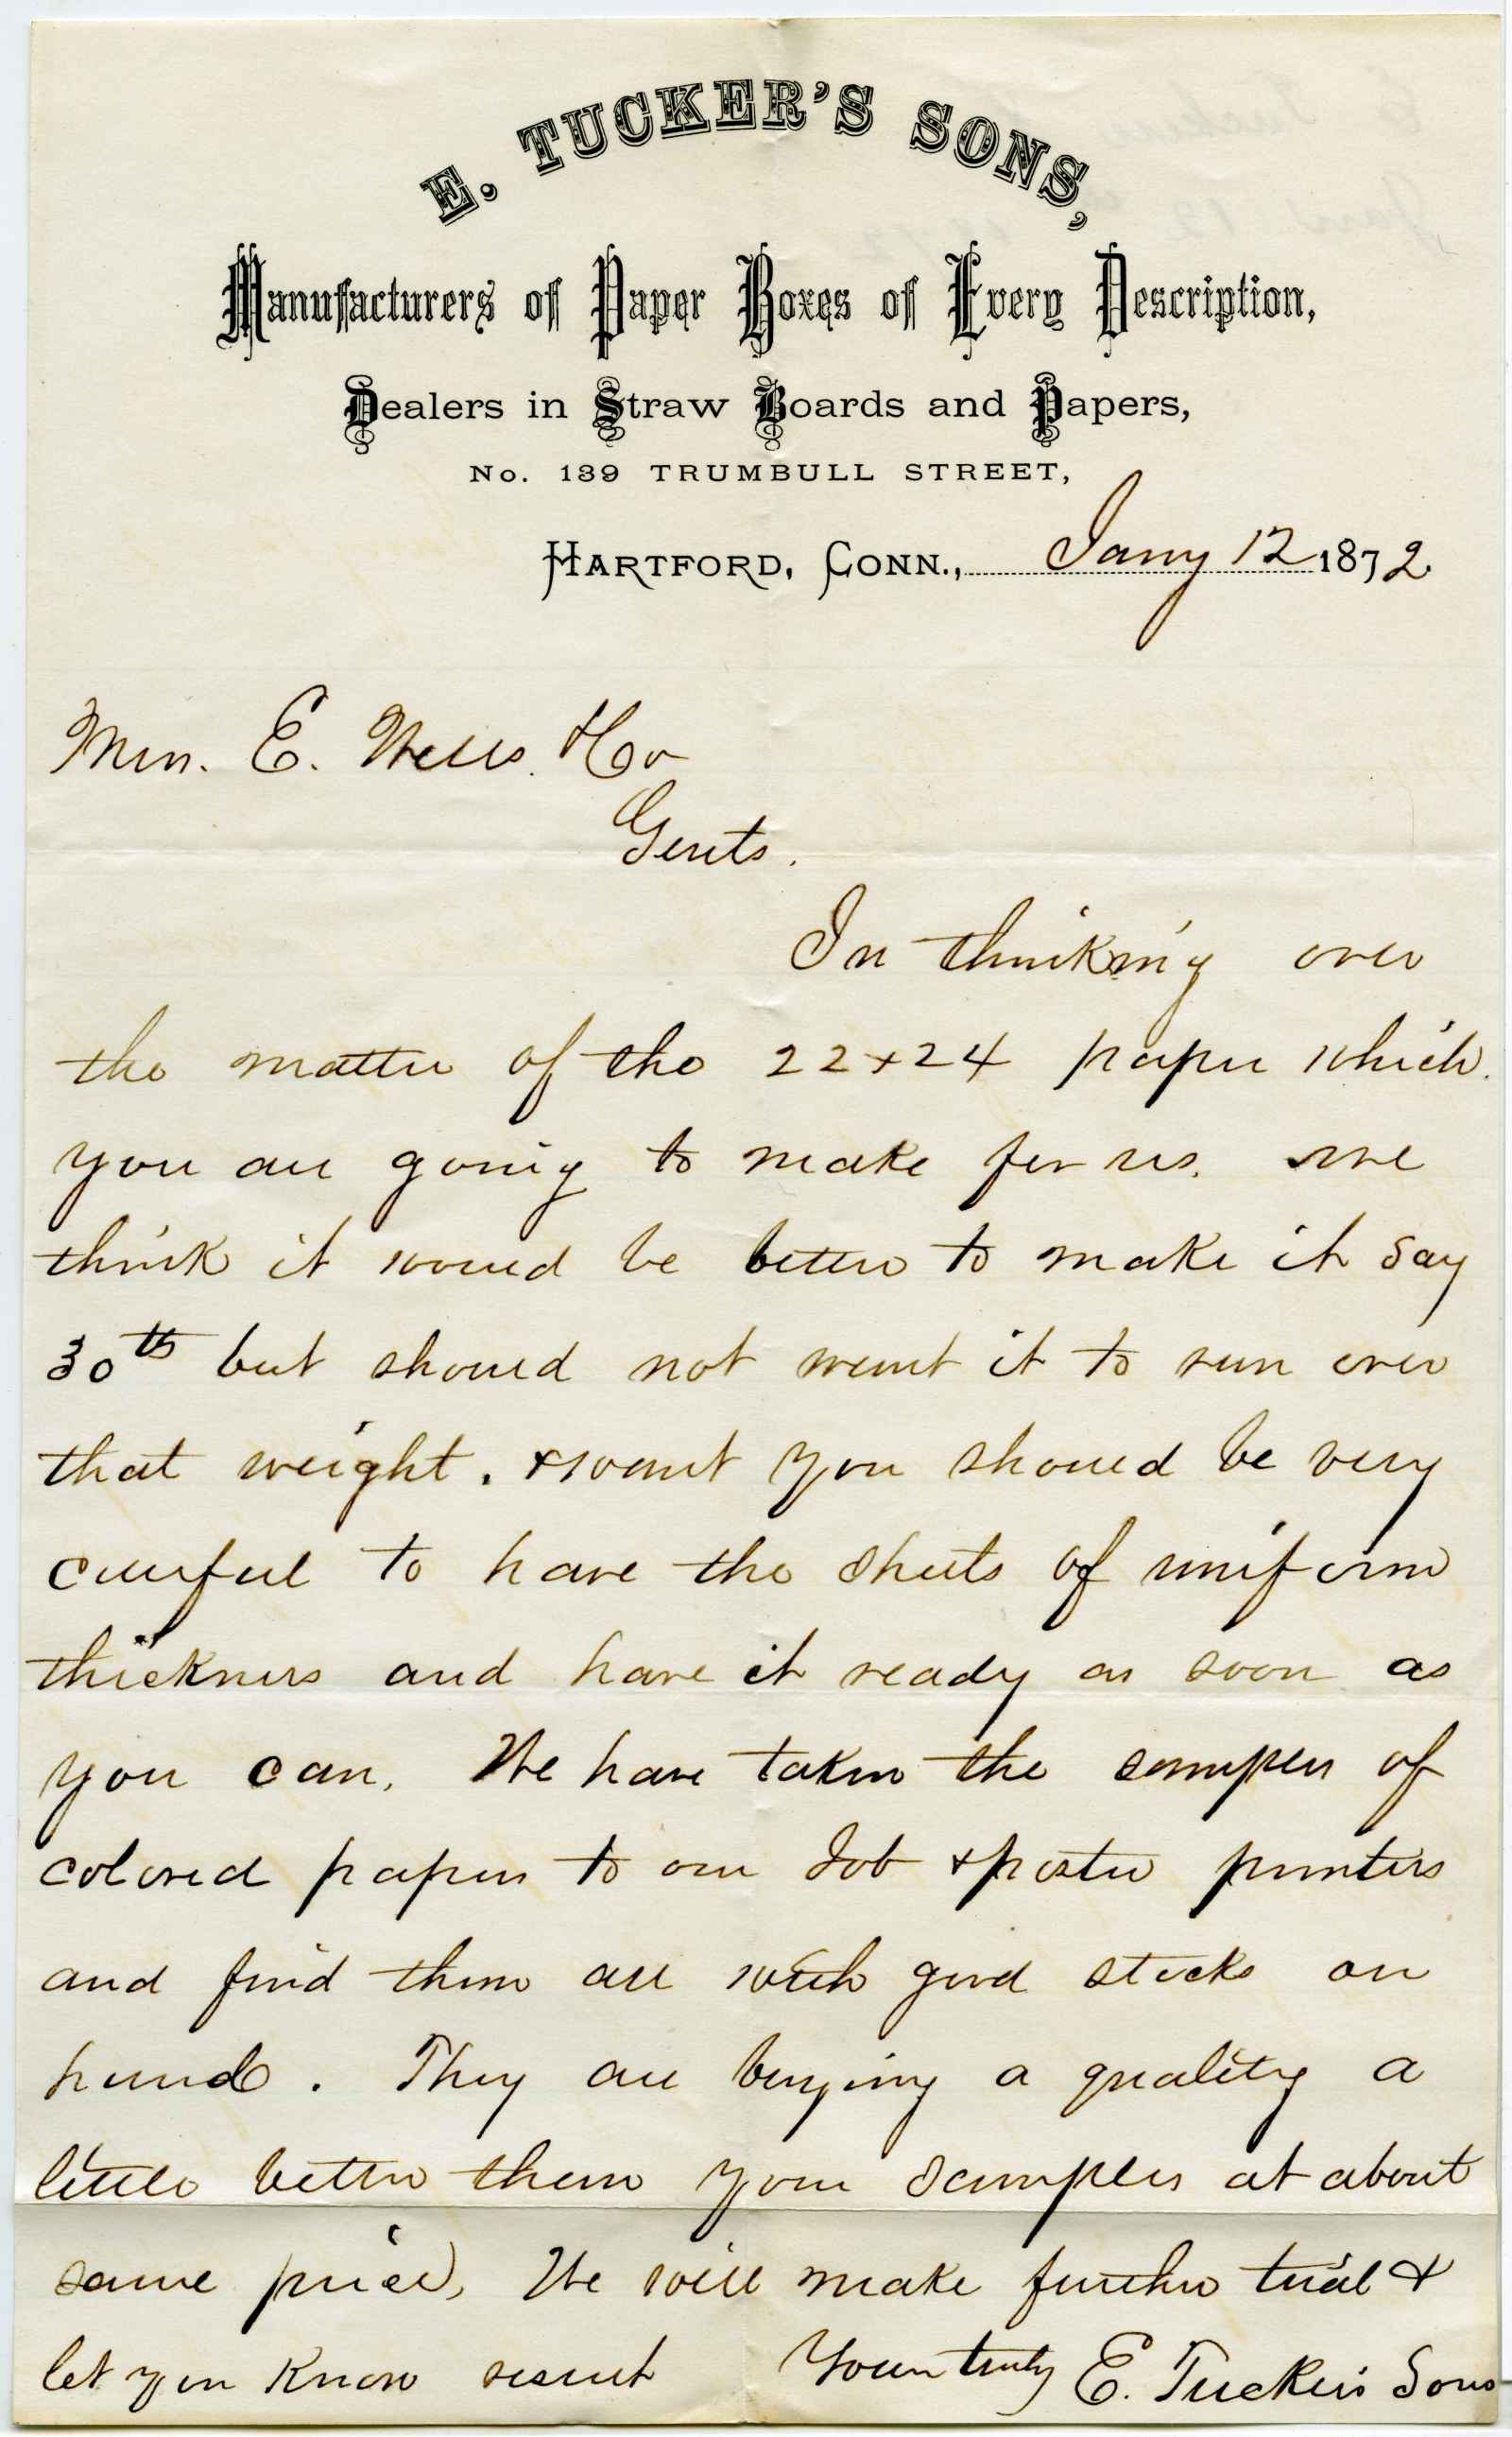 E. TUCKER'S SONS,
Manufacturers of Paper Boxes of Every Description,
Dealers in Straw Boards and Papers,
No. 139 TRUMBULL STREET,
HARTFORD, CONN., Jany 12 1872
Messrs. E. Wells & Co
Gents.
In thinking over
the matter of the 22x24 paper which
you are going to make for us. we
think it would be better to make it say
30 lb but should not want it to run over
that weight. & want you should be very
careful to have the sheets of uniform
thickness and have it ready as soon as
you can. We have taken the samples of
colored papers to our Job & poster printers
and find them all with good stocks on
hand. They are buying a quality a
little better than your samples at about
same price. We will make further trial &
let you know result Yours truly E. Tucker's Sons